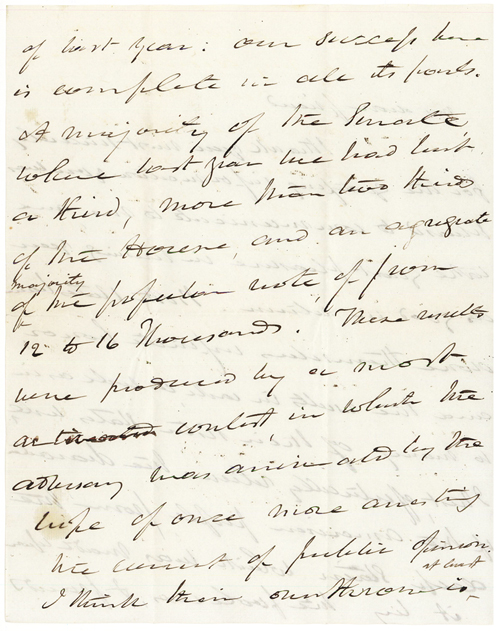 of last year: our success here
is complete in all its parts.
A majority of the Senate,
where last year we had but
a third, more than two thirds
of the House, and an agregate
majority
of the popular vote, of from
12 to 16 Thousands. These results
were produced by a most
contest, in which the
adversary was animated by the
hope of once more arresting
the current of public opinion.
at least
I think their overthrow is,